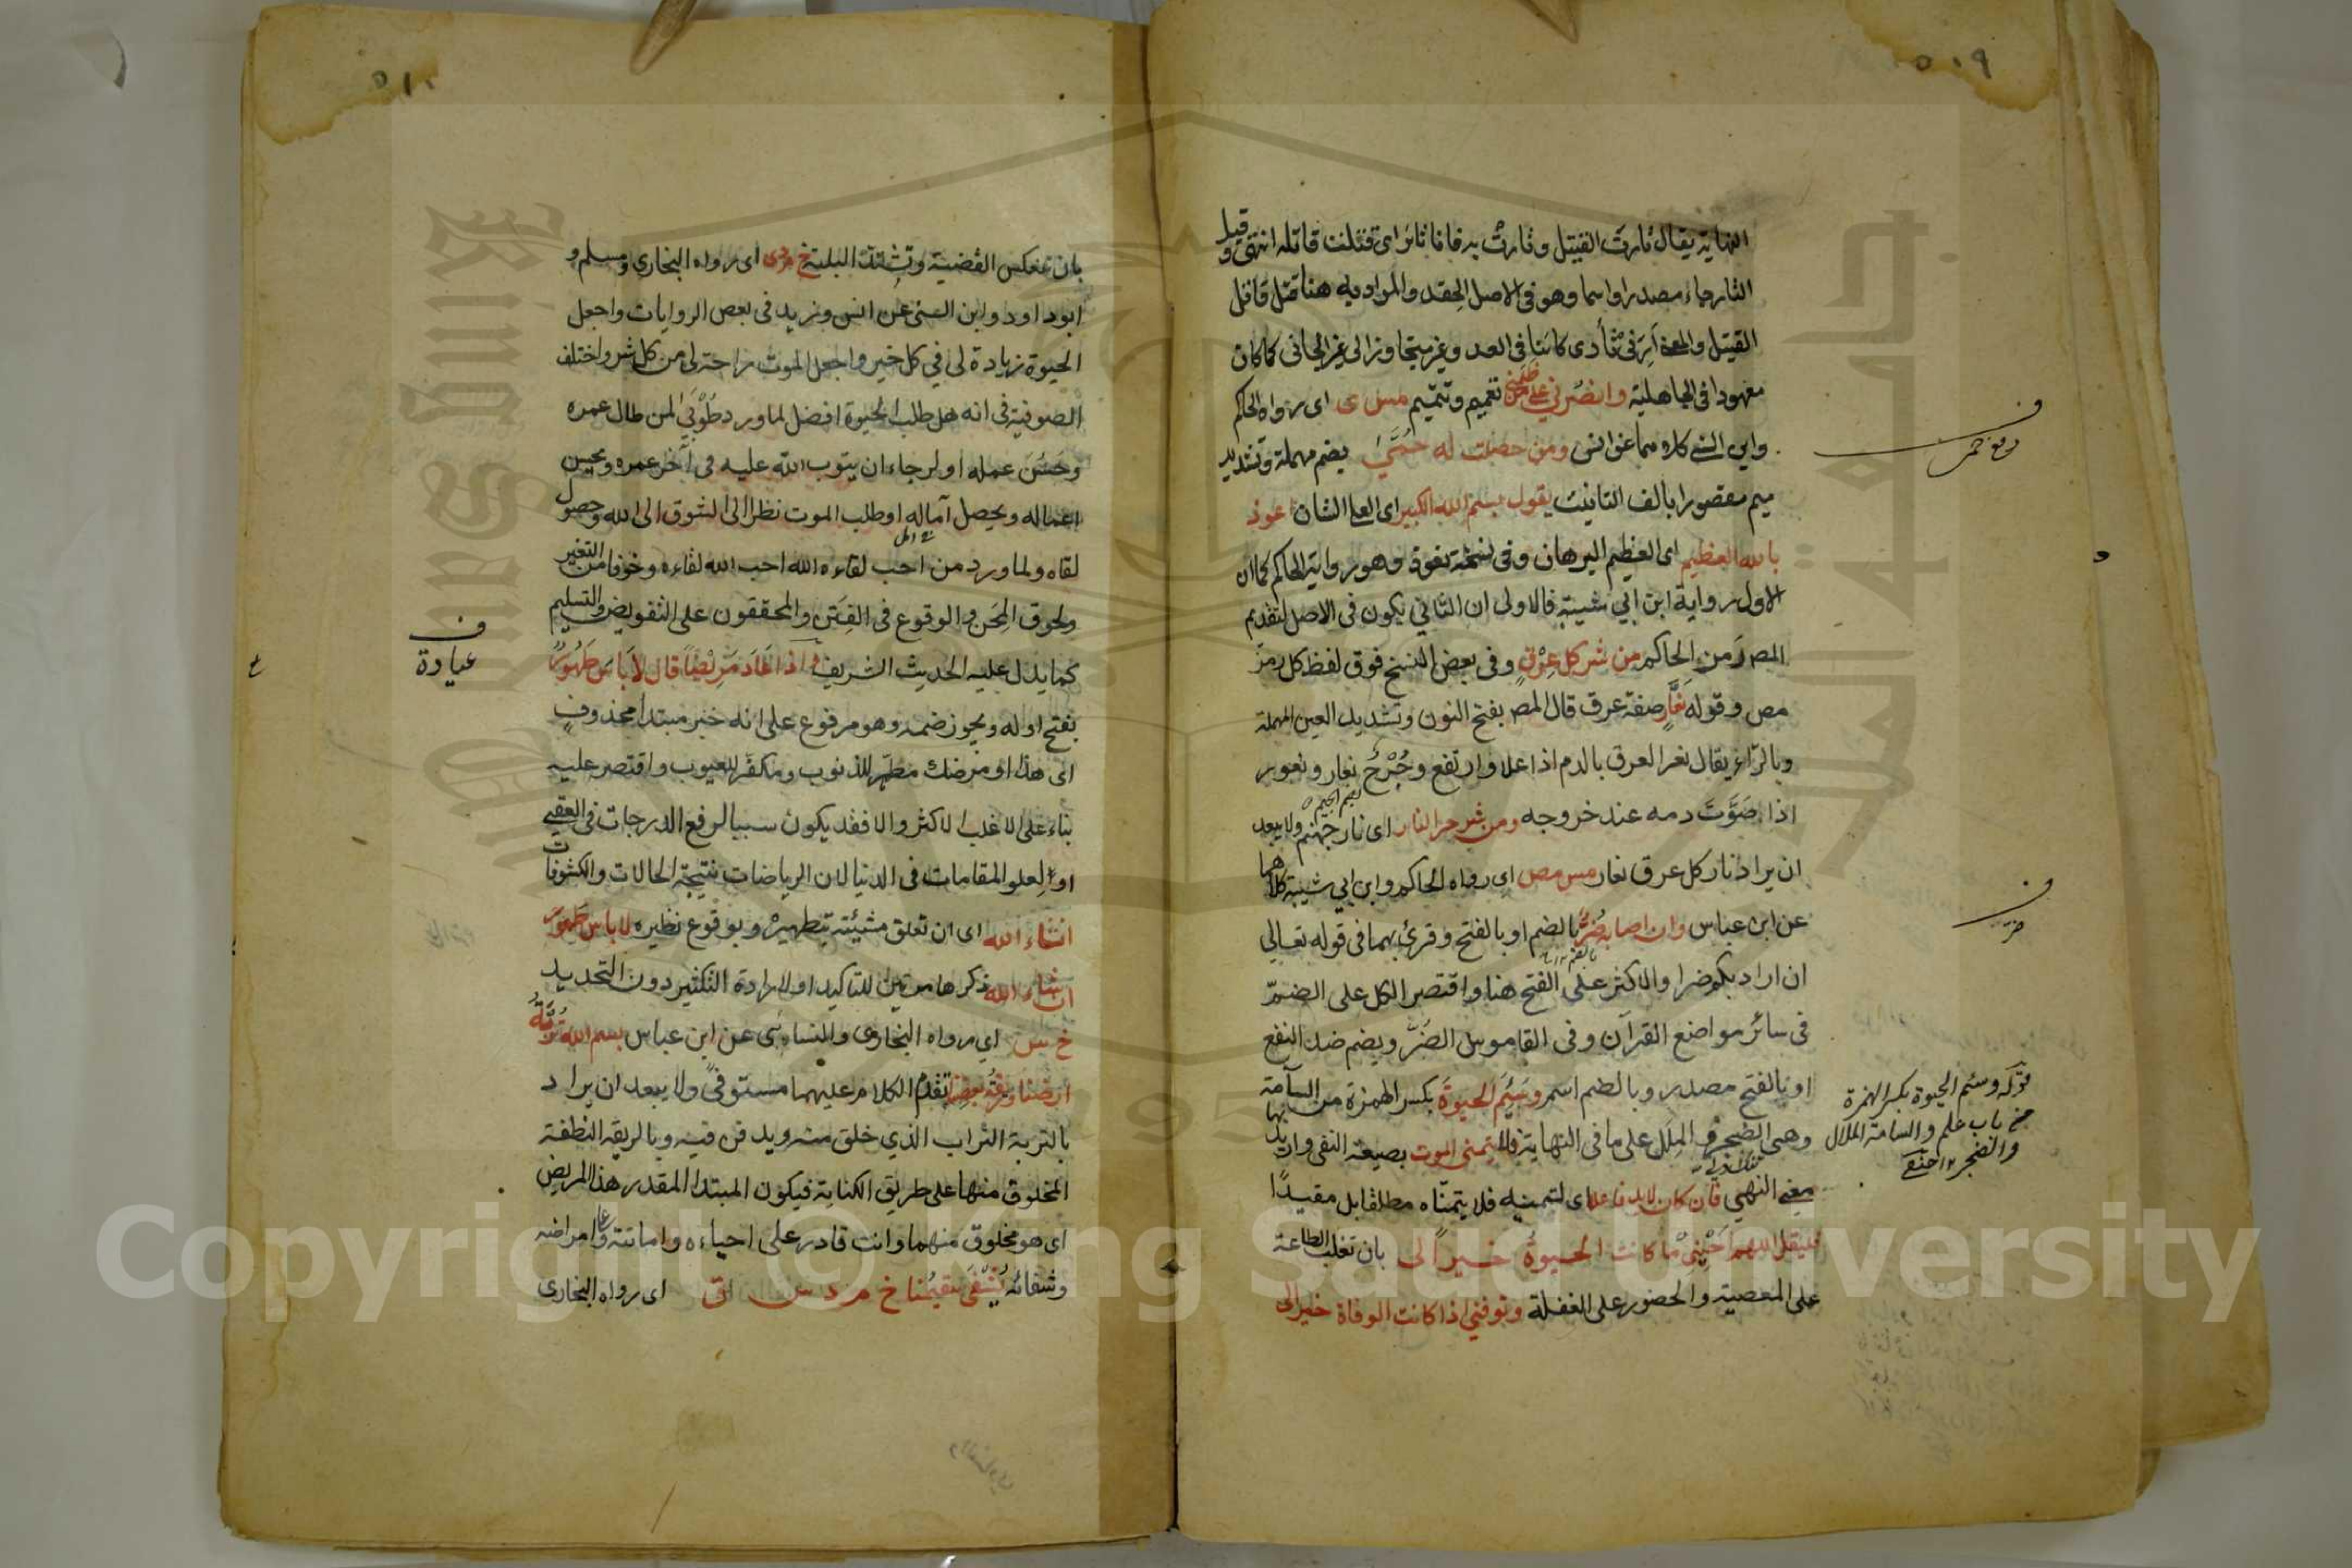 ٥٠٩
النهاية يقال ثارت القتيل وثارت به فانا ثائر اى قتلت قاتله انتهى وقيل
الثار جاء مصدرا واسما وهو فى الاصل الحقد والمراد به هنا قتل قاتل
القتيل والمعنى ارنى ثأرى كائنا فى العدو غير متجاوز الى غير الجانى كما كان
معهودا فى الجاهلية وانصرني على من ظلمني تعميم وتتميم مس ى اى رواه الحاكم
وابن السنى كلاهما عن انس ومن حصلت له حمى بضم مهملة وتشديد
ميم مقصورا بالف التانيث يقول بسم الله الكبير اى العلى الشان اعوذ
بالله العظيم اى العظيم البرهان وفى نسخة نعوذ وهو رواية الحاكم كما ان
الاول رواية ابن ابي شيبة فالاولى ان الثاني يكون فى الاصل لتقديم
المص رمز الحاكم من شر كل عرق وفى بعض النسخ فوق لفظ كل رمز
مص وقوله نعار صفة عرق قال المص بفتح النون وتشديد العين المهملة
وبالراء يقال نعر العرق بالدم اذا علا وارتفع وجرح نعار ونعور
اذا صوت دمه عند خروجه ومن شر حر النار اى نار جهنم ولا يبعد
ان يراد نار كل عرق نعار مس مص اى رواه الحاكم وابن ابي شيبة كلاهما
عن ابن عباس وان اصابه ضر بالضم او بالفتح وقرئ بهما فى قوله تعالى
ان اراد بكم ضرا والاكثر على الفتح هنا واقتصر الكل على الضم
فى سائر مواضع القرآن وفى القاموس الضر ويضم ضد النفع
او بالفتح مصدر وبالضم اسم وسئم الحيوة بكسر الهمزة من السآمة
وهى الضجر والملل على ما فى النهاية فلا يتمنى الموت بصيغة النفى واريد بها
معنى النهي فان كان لابد فاعلا اى لتمنيه فلا يتمناه مطلقا بل مقيدا
فليقل اللهم احيني ما كانت الحيوة خيرا لى بان تغلب الطاعة
على المعصية والحضور على الغفلة وتوفني اذا كانت الوفاة خيرا لى
قوله وسئم الحيوة بكسر الهمزة
من باب علم والسامة الملال
والضجر ١٢ حنفى
٥١٠
بان تنعكس القضية وتشتد البلية خ م د ى اى رواه البخاري ومسلم و
ابو داود وابن السنى عن انس وزيد فى بعض الروايات واجعل
الحيوة زيادة لى في كل خير واجعل الموت راحة لى من كل شر واختلف
الصوفية فى انه هل طلب الحيوة افضل لما ورد طوبى لمن طال عمره
وحسن عمله او لرجاء ان يتوب الله عليه فى آخر عمره ويحسن
اعماله ويحصل آماله او طلب الموت نظرا الى الشوق الى الله وحصول
لقاه ولما ورد من احب لقاءه الله احب الله لقاءه وخوفا من التغير
ولحوق المحن والوقوع فى الفتن والمحققون على التفويض والتسليم
كما يدل عليه الحديث الشريف واذا عاد مريضا قال لا باس طهور
بفتح اوله ويجوز ضمه وهو مرفوع على انه خبر مبتدا محذوف
اى هذا او مرضك مطهر للذنوب ومكفر للعيوب واقتصر عليه
بناء على الاغلب الاكثر والا فقد يكون سببا لرفع الدرجات فى العقبى
او لعلو المقامات فى الدنيا لان الرياضات نتيجة الحالات والكشوفات
انشاء الله اى ان تعلق مشيئته بتطهيره وبوقوع نظيره لا باس طهور
ان شاء الله ذكرها مرتين للتاكيد او لارادة التكثير دون التحديد
خ س اي رواه البخارى والنساءى عن ابن عباس بسم الله تربة
ارضنا وريقة بعضنا تقدم الكلام عليهما مستوفى ولا يبعد ان يراد
بالتربة التراب الذي خلق منه ويدفن فيه وبالريقة النطفة
المخلوق منها على طريق الكناية فيكون المبتدا المقدر هذا المريض
اى هو مخلوق منهما وانت قادر على احياءه واماتته وامراضه
وشفائه يشفى سقيمنا خ م د س ق اى رواه البخارى
ف
عيادة
Copyright © King Saud University